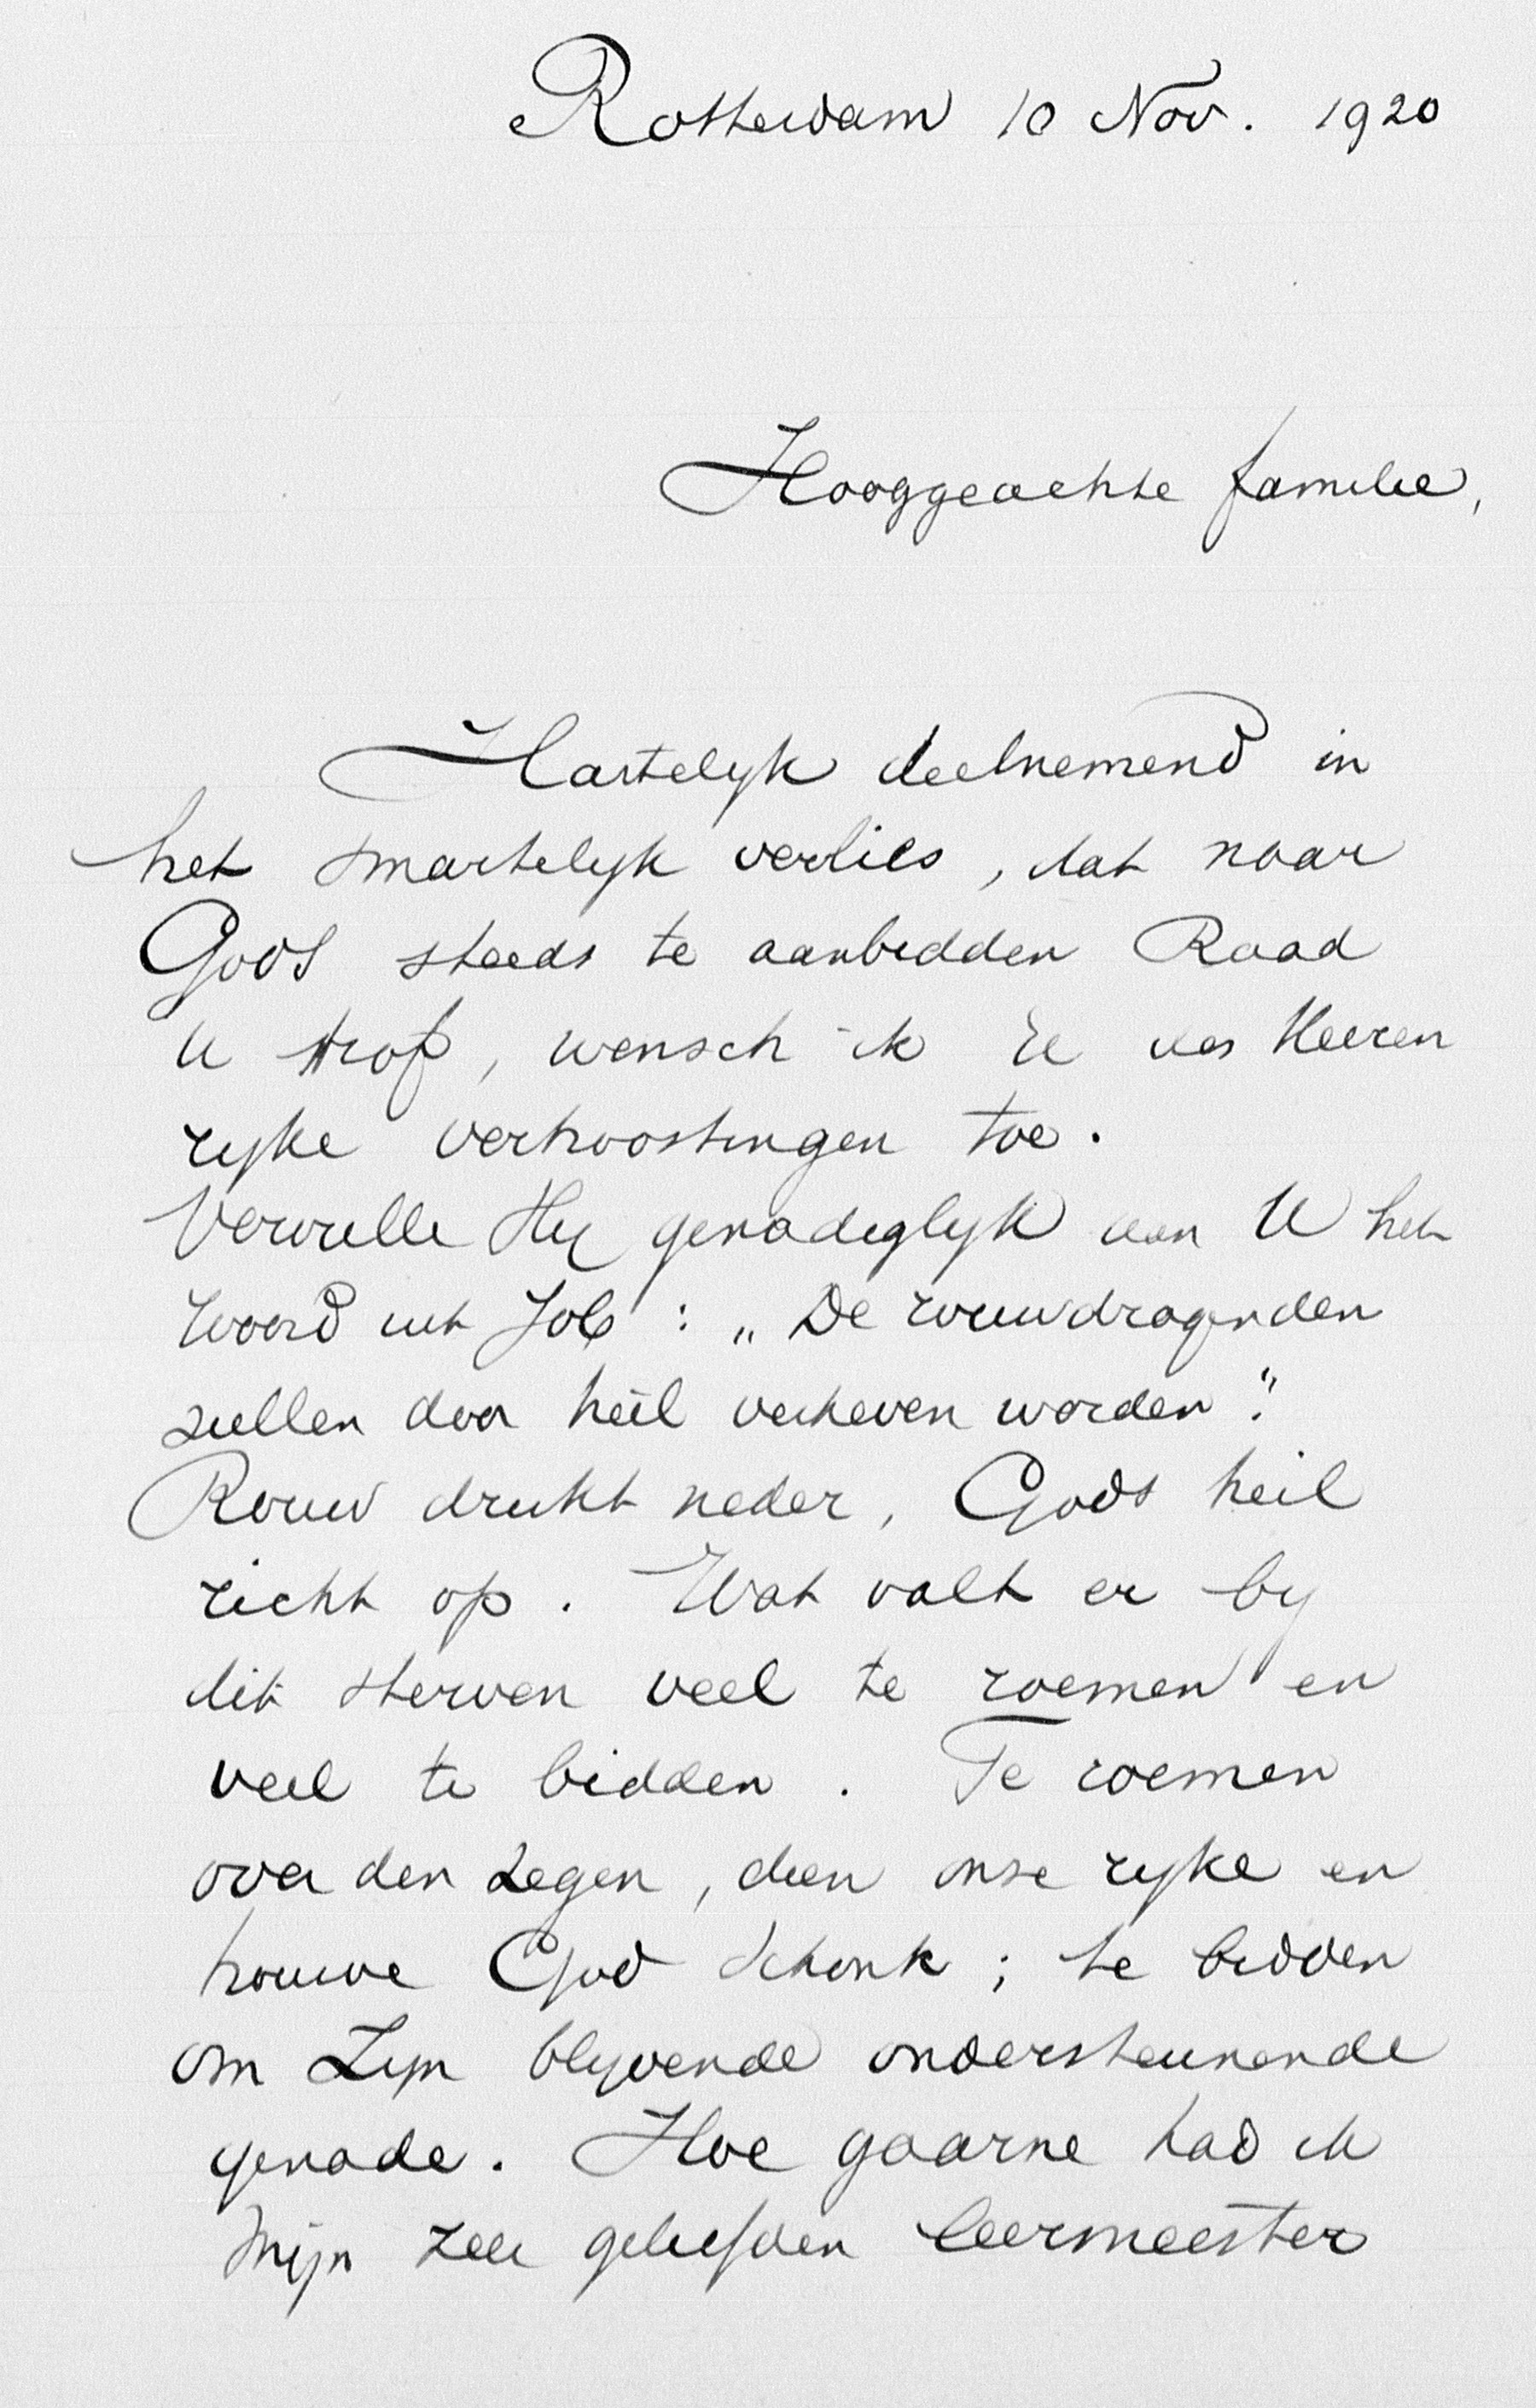 Rotterdam 10 Nov. 1920
Hooggeachte familie,
Hartelyk deelnemend in
het smartelyk verlies, dat naar
Gods steeds te aanbidden Raad
U trof, wensch ik U des Heeren
ryke vertroostingen toe.
Vervulle Hy genadeglyk aan U het
woord uit Job: „De rouwdragenden
zullen door heil verheven worden".
Rouw drukt neder, Gods heil
richt op. Wat valt er by
dit sterven veel te roemen en
veel te bidden. Te roemen
over den zegen, dien onze ryke en
trouwe God schonk; te bidden
om Zyn blyvende ondersteunende
genade. Hoe gaarne had ik
mijn zeer geliefden leermeester